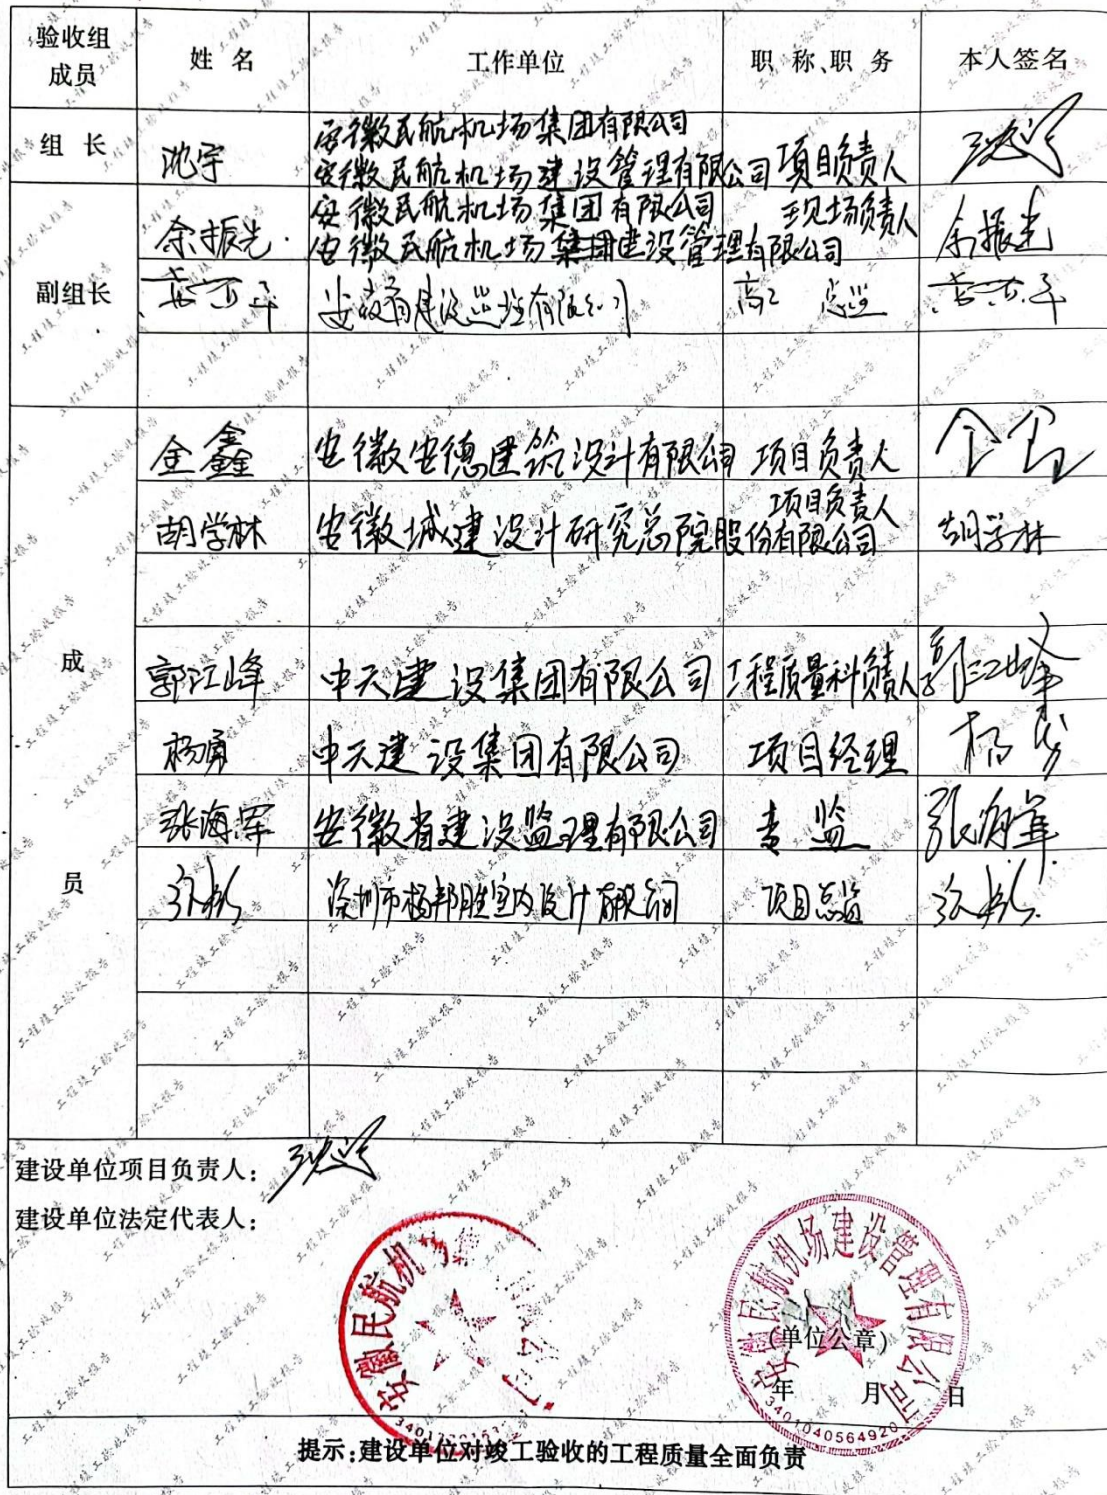 验收组成员 姓 名 工作单位 职 称、职 务 本人签名
组 长 沈宇 安徽民航机场集团有限公司
安徽民航机场建设管理有限公司 项目负责人
副组长 余振光 安徽民航机场集团有限公司 现场负责人 余振光
安徽民航机场集团建设管理有限公司
安徽省建设监理有限公司 高工 总监
成员
金鑫 安徽安德建筑设计有限公司 项目负责人
胡学林 安徽城建设计研究总院股份有限公司 项目负责人 胡学林
郭江峰 中天建设集团有限公司 工程质量科负责人 郭江峰
杨勇 中天建设集团有限公司 项目经理 杨勇
张海军 安徽省建设监理有限公司 专监 张海军
深圳市杨邦胜室内设计有限公司 项目总监
建设单位项目负责人：
建设单位法定代表人：
安徽民航机场
安徽民航机场建设管理有限公司
(单位公章)
年 月 日
3401040564920
提示:建设单位对竣工验收的工程质量全面负责
工程竣工验收报告